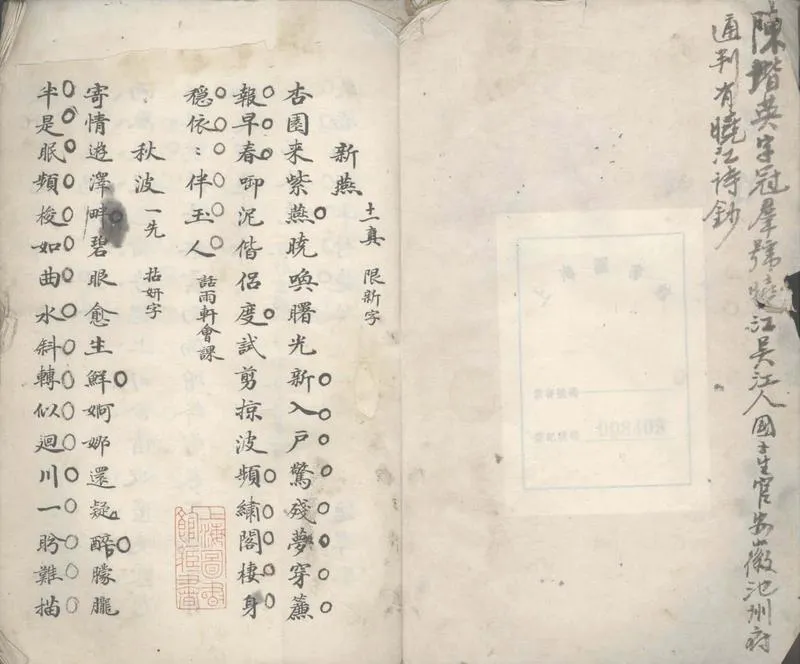 陳堦英字冠羣號曉江吳江人國子生官安徽池州府
通判有曉江詩鈔
新燕
十一真 限新字
杏園來紫燕曉喚曙光新入戶驚殘夢穿簾
報早春啣泥偕侶度試剪掠波頻繡閣棲身
穩依〻伴玉人
話雨軒會課
秋波 一先 拈妍字
寄情遊澤畔碧眼愈生鮮婀娜還疑醉朦朧
半是眠頻梭如曲水斜轉似迴川一盼難描
上海圖書館藏書